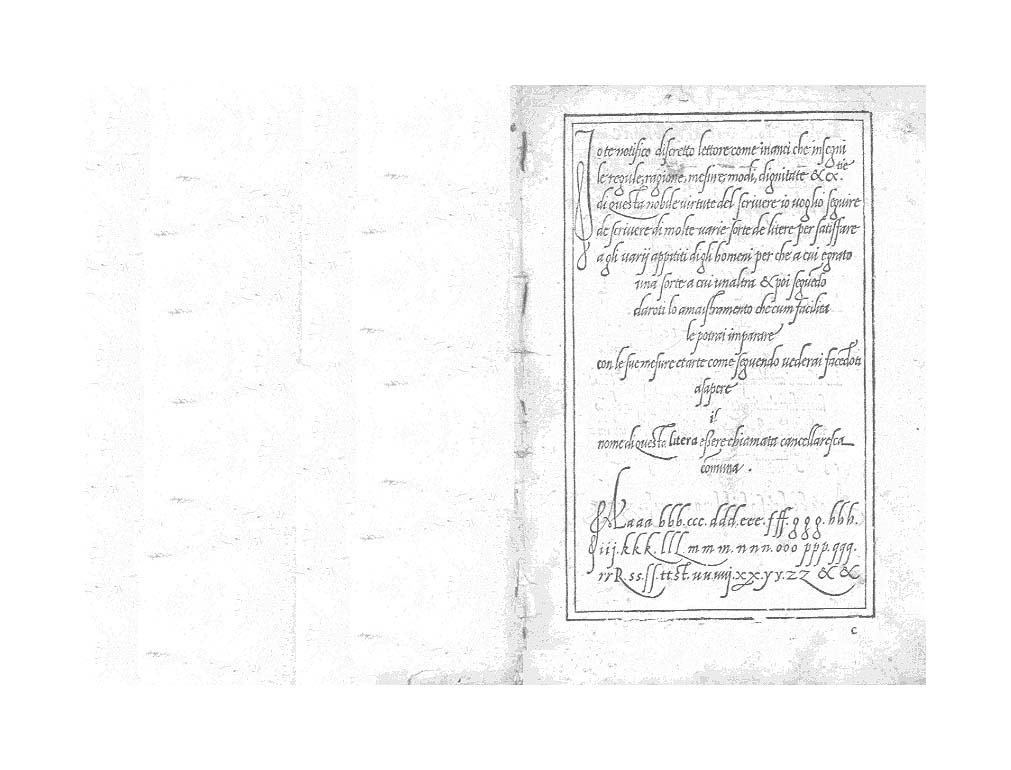 Jo te notifico discretto lettore come inanci che insegni
le regule, ragione, mesure, modi, dignitate & ex.tie
di questa nobile virtute del scrivere io voglio seguire
de scrivere di molte varie sorte de litere per satisffare
a gli varij appititi di gli homeni per che a cui egrato
una sorte a cui unaltra & poi seguēdo
daroti lo amaistramento che cum facilita
le potrai imparare
con le sue mesure et arte come seguendo vederai facēdoti
asapere
il
nome di questa litera essere chiamata cancellaresca
comuna .
A aaa bbb. ccc. ddd. eee. fff. ggg. hhh.
iij. kkk. lll. mmm. nnn. ooo ppp. qqq.
rrR. ss. ſſ. tt st. uu. xx. yy. zz & &
c